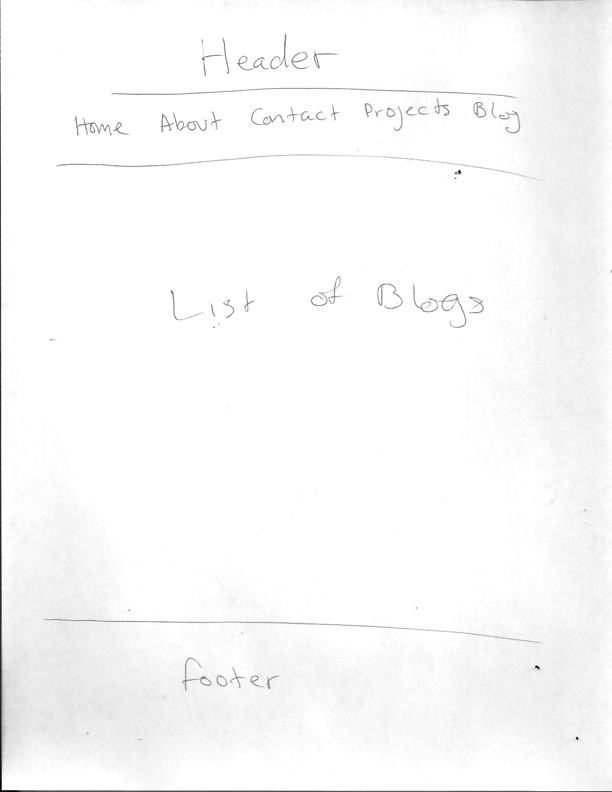 Header
Home About Contact Projects Blog
List of Blogs
footer